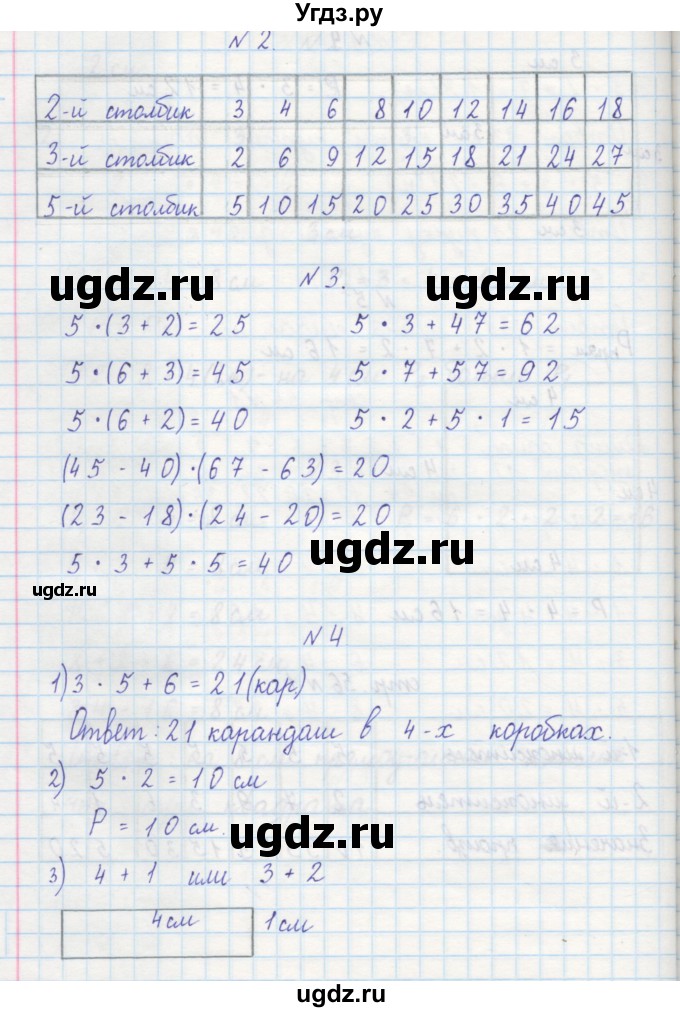 Угдз.ру
N 2.
2-й столбик 3 4 6 8 10 12 14 16 18
3-й столбик 2 6 9 12 15 18 21 24 27
5-й столбик 5 10 15 20 25 30 35 40 45
N 3.
ugdz.ru ugdz.ru
5 · (3 + 2) = 25 5 · 3 + 47 = 62
5 · (6 + 3) = 45 5 · 7 + 57 = 92
5 · (6 + 2) = 40 5 · 2 + 5 · 1 = 15
(45 - 40) · (67 - 63) = 20
(23 - 18) · (24 - 20) = 20
ugdz.ru
5 · 3 + 5 · 5 = 40
ugdz.ru
N 4
1) 3 · 5 + 6 = 21 (кар)
Ответ: 21 карандаш в 4-х коробках.
2) 5 · 2 = 10 см
P = 10 см.
ugdz.ru
3) 4 + 1 или 3 + 2
4 см 1 см
ugdz.ru
ugdz.ru